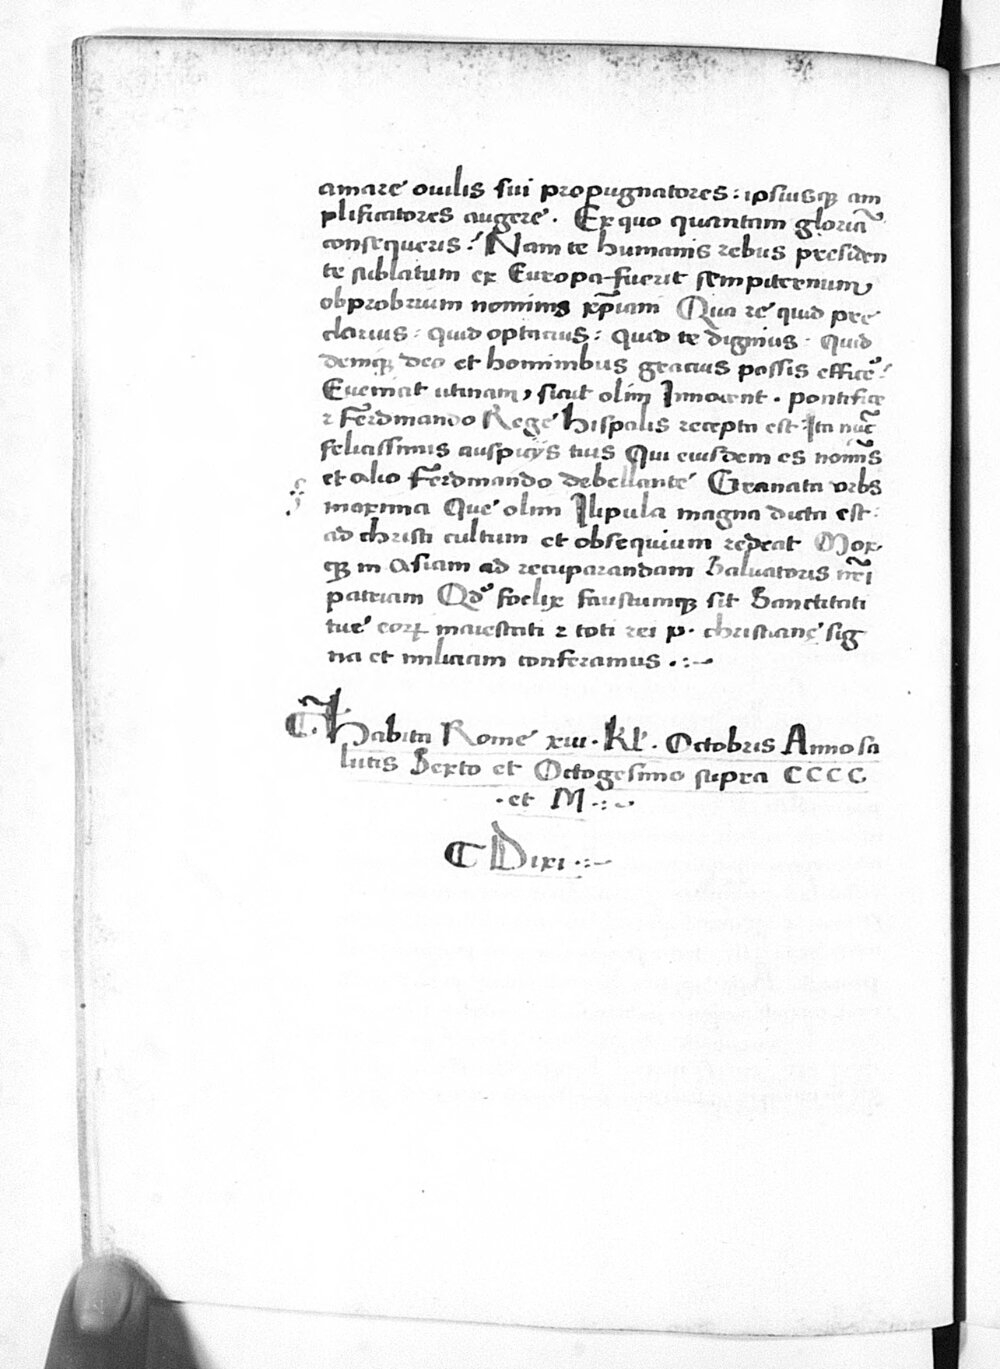 amare ouilis sui propugnatores : ipsiusqȝ am
plificatores augere . Ex quo quantam gloriā
consequeris ? Nam te humanis rebus presiden
te sublatum ex Europa fuerit sempiternum
obprobrium nominis xp̄iani Qua re quid pre
clarius : quid optatius : quid te dignius : quid
demqȝ deo et hominibus gratius possis efficē ?
Eueniat utinam, sicut olim Innocent . pontifice
⁊ Ferdinando Rege hispalis recepta est Ita nūc
felicissimis auspicijs tuis Qui eiusdem es nomīs
et alio Ferdinando debellante Granata vrbs
maxima Que olim Ilipula magna dicta est :
ad christi cultum et obsequium redeat Mox
qȝ in Asiam ad recuparandam Saluatoris nr̄i
patriam Qd̄ foelix faustumqȝ sit Sanctitati
tue eorꝝ maiestati ⁊ toti rei p. christianę sig
na et miliciam conferamus . :~
Habita Rome xiii . Kl̄ . Octobris Anno sa
lutis Sexto et Octogesimo supra CCCC
. et M . :~
Dixi . :~